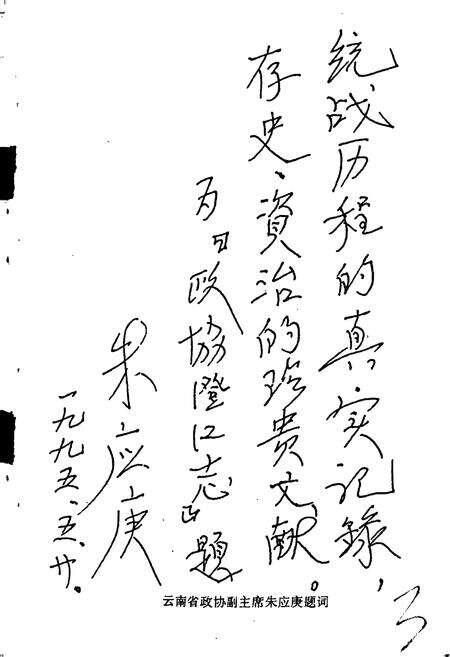 统战历程的真实记录，
存史、資治的珍贵文献。
为『政协澄江志』题
朱应庚
一九九五.五.廿.
云南省政协副主席朱应庚题词